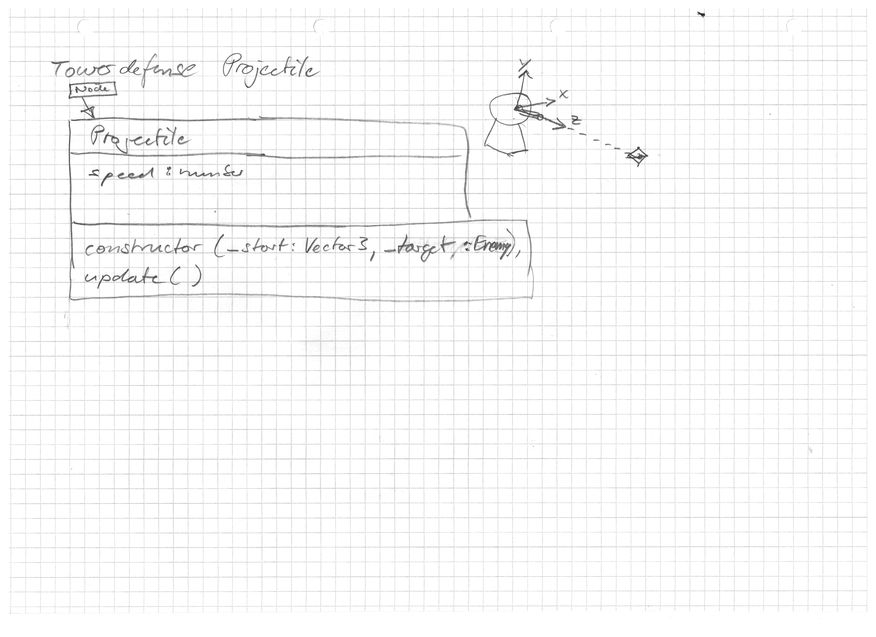 Towerdefense Projectile
Node
Projectile
speed : number
constructor (_start: Vector3, _target : Enemy),
update ( )
y
x
z